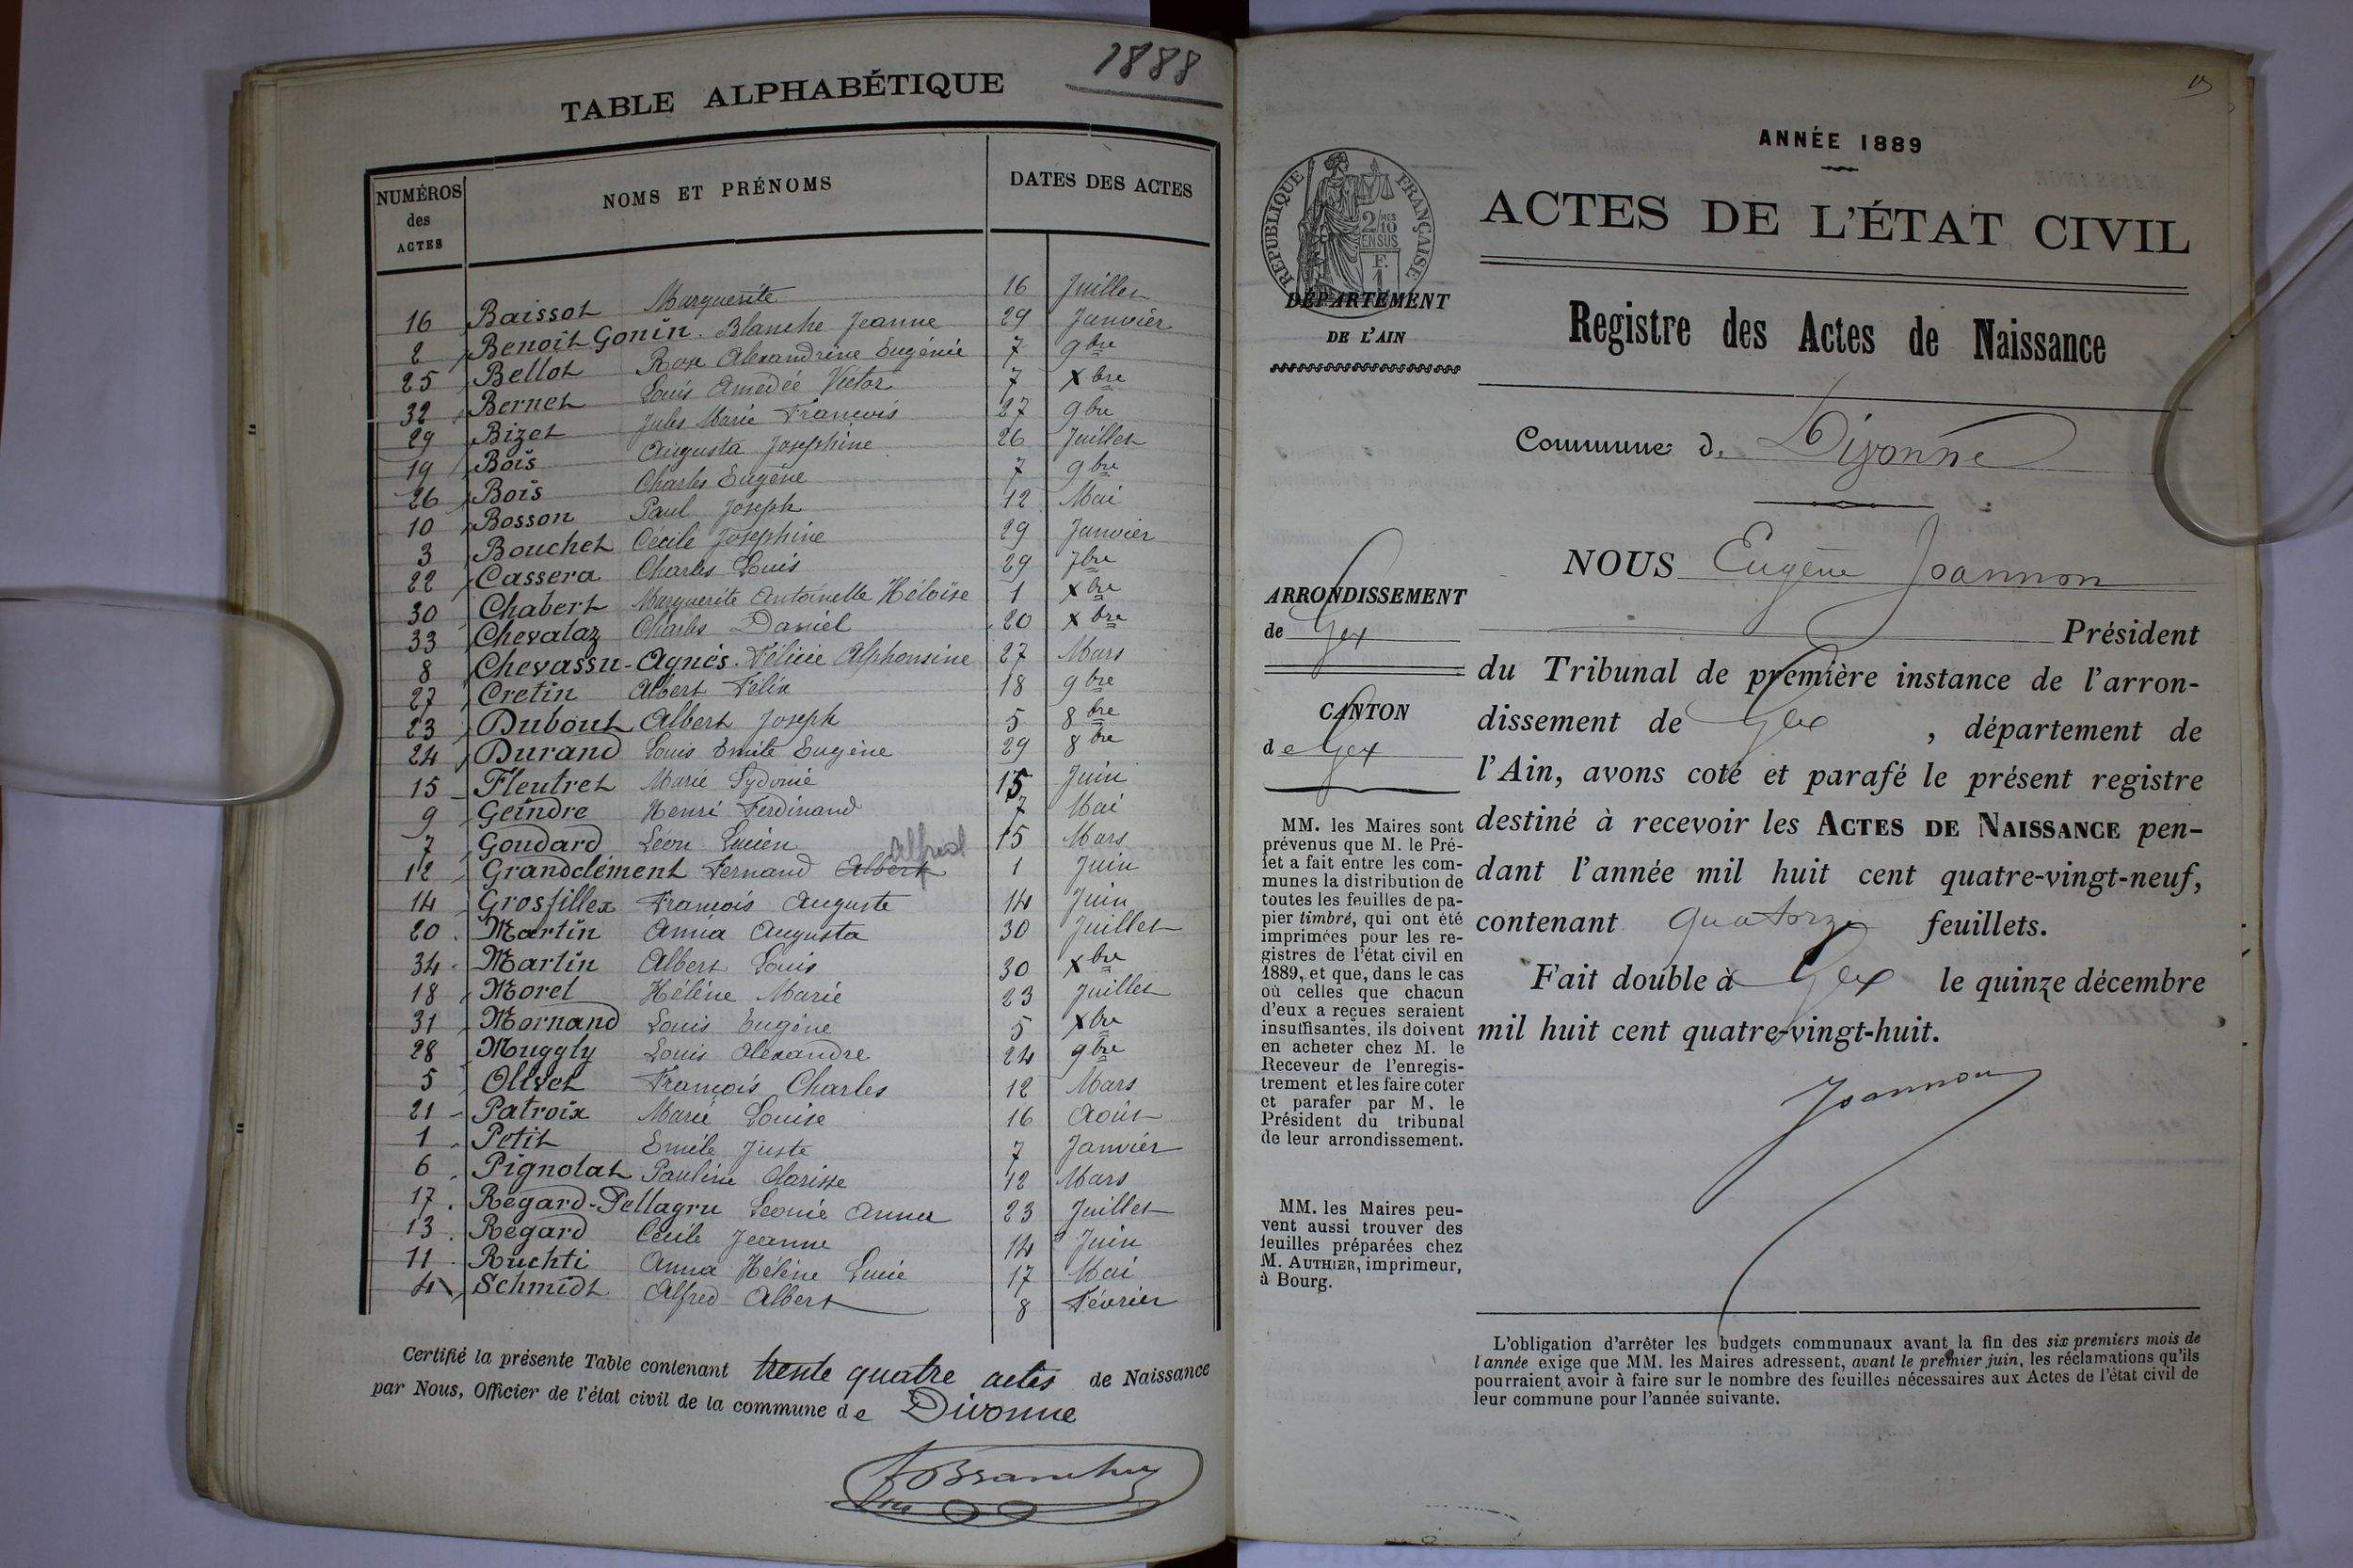 1888
TABLE ALPHABÉTIQUE
NUMÉROS des ACTES NOMS ET PRÉNOMS DATES DES ACTES
16 Baissot Marguerite 16 Juillet
2 Benoit Gonin Blanche Jeanne 29 Janvier
25 Bellot Rose Alexandrine Eugénie 7 9bre
32 Bernet Louis Amédée Victor 7 Xbre
29 Bizet Jules Marie Francois 27 9bre
19 Bois Augusta Josephine 26 Juillet
26 Bois Charles Eugène 7 9bre
10 Bosson Paul Joseph 12 Mai
3 Bouchet Cécile Josephine 29 Janvier
22 Cassera Charles Louis 29 7bre
30 Chabert Marguerite Antoinette Héloïse 1 Xbre
33 Chevalaz Charles Daniel 20 Xbre
8 Chevassu-Agnès Félicie Alphonsine 27 Mars
27 Cretin Albert Félix 18 9bre
23 Dubout Albert Joseph 5 8bre
24 Durand Louis Emile Eugène 29 8bre
15 Fleutret Marie Sydonie 15 Juin
9 Geindre Henri Ferdinand 7 Mai
7 Goudard Léon Lucien 15 Mars
12 Grandclément Fernand Albert Alfred 1 Juin
14 Grosfillex Francois Auguste 14 Juin
20 Martin Anna Augusta 30 Juillet
34 Martin Albert Louis 30 Xbre
18 Morel Hélène Marie 23 Juillet
31 Mornand Louis Eugène 5 Xbre
28 Muggly Louis Alexandre 24 9bre
5 Olivet François Charles 12 Mars
21 Patroix Marie Louise 16 Août
1 Petit Emile Juste 7 Janvier
6 Pignolat Pauline Clarisse 12 Mars
17 Regard-Pellagru Leonie Anna 23 Juillet
13 Regard Cécile Jeanne 14 Juin
11 Ruchti Anna Hélène Lucie 17 Mai
4 Schmidt Alfred Albert 8 Février
Certifié la présente Table contenant trente quatre actes de Naissance
par Nous, Officier de l'état civil de la commune de Divonne
ANNÉE 1889
RÉPUBLIQUE FRANÇAISE
2/10 EN SUS
F. 1
ACTES DE L'ÉTAT CIVIL
DÉPARTEMENT
DE L'AIN
Registre des Actes de Naissance
Commune de Divonne
NOUS Eugène Joannon
Président
du Tribunal de première instance de l'arron-
dissement de Gex, département de
l'Ain, avons coté et parafé le présent registre
destiné à recevoir les ACTES DE NAISSANCE pen-
dant l'année mil huit cent quatre-vingt-neuf,
contenant quatorze feuillets.
Fait double à Gex le quinze décembre
mil huit cent quatre-vingt-huit.
Joannon
ARRONDISSEMENT
de Gex
CANTON
de Gex
MM. les Maires sont
prévenus que M. le Pré-
fet a fait entre les com-
munes la distribution de
toutes les feuilles de pa-
pier timbré, qui ont été
imprimées pour les re-
gistres de l'état civil en
1889, et que, dans le cas
où celles que chacun
d'eux a reçues seraient
insuffisantes, ils doivent
en acheter chez M. le
Receveur de l'enregis-
trement et les faire coter
et parafer par M. le
Président du tribunal
de leur arrondissement.
MM. les Maires peu-
vent aussi trouver des
feuilles préparées chez
M. AUTHIER, imprimeur,
à Bourg.
L'obligation d'arrêter les budgets communaux avant la fin des six premiers mois de
l'année exige que MM. les Maires adressent, avant le premier juin, les réclamations qu'ils
pourraient avoir à faire sur le nombre des feuilles nécessaires aux Actes de l'état civil de
leur commune pour l'année suivante.